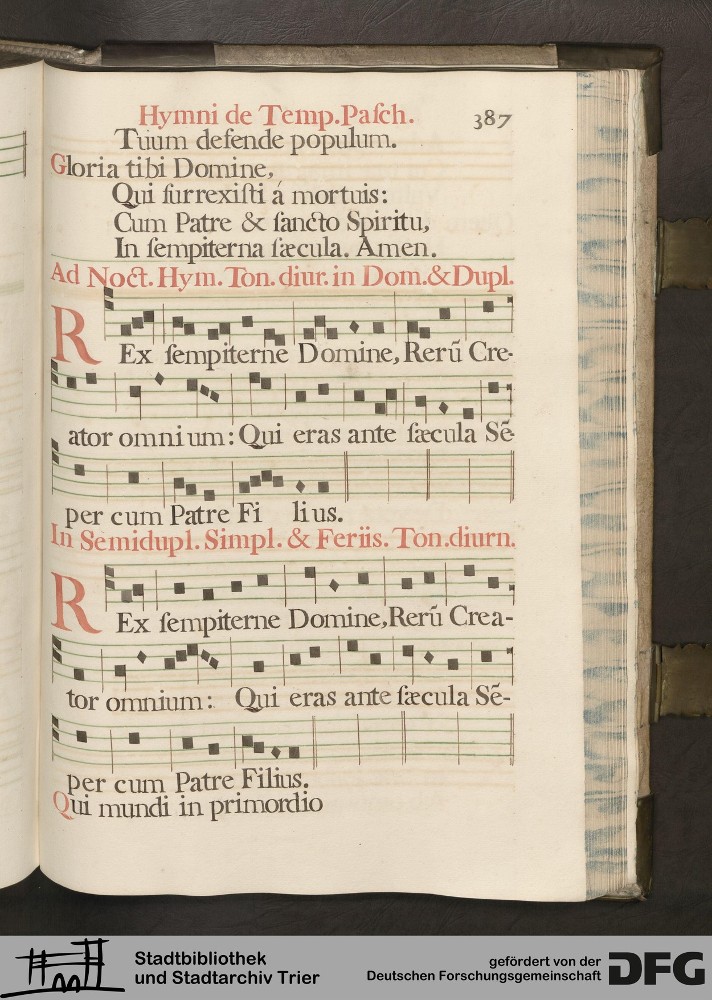 Hymni de Temp.Paſch. 387
Tuum defende populum.
Gloria tibi Domine,
Qui ſurrexiſti á mortuis:
Cum Patre & ſancto Spiritu,
In ſempiterna ſæcula. Amen.
Ad Noct. Hym. Ton. diur. in Dom.& Dupl.
REx ſempiterne Domine, Rerū Cre-
ator omnium: Qui eras ante ſæcula Sē-
per cum Patre Fi lius.
In Semidupl. Simpl. & Feriis. Ton.diurn.
REx ſempiterne Domine,Rerū Crea-
tor omnium: Qui eras ante ſæcula Sē-
per cum Patre Filius.
Qui mundi in primordio
Stadtbibliothek
und Stadtarchiv Trier
gefördert von der
Deutschen Forschungsgemeinschaft
DFG